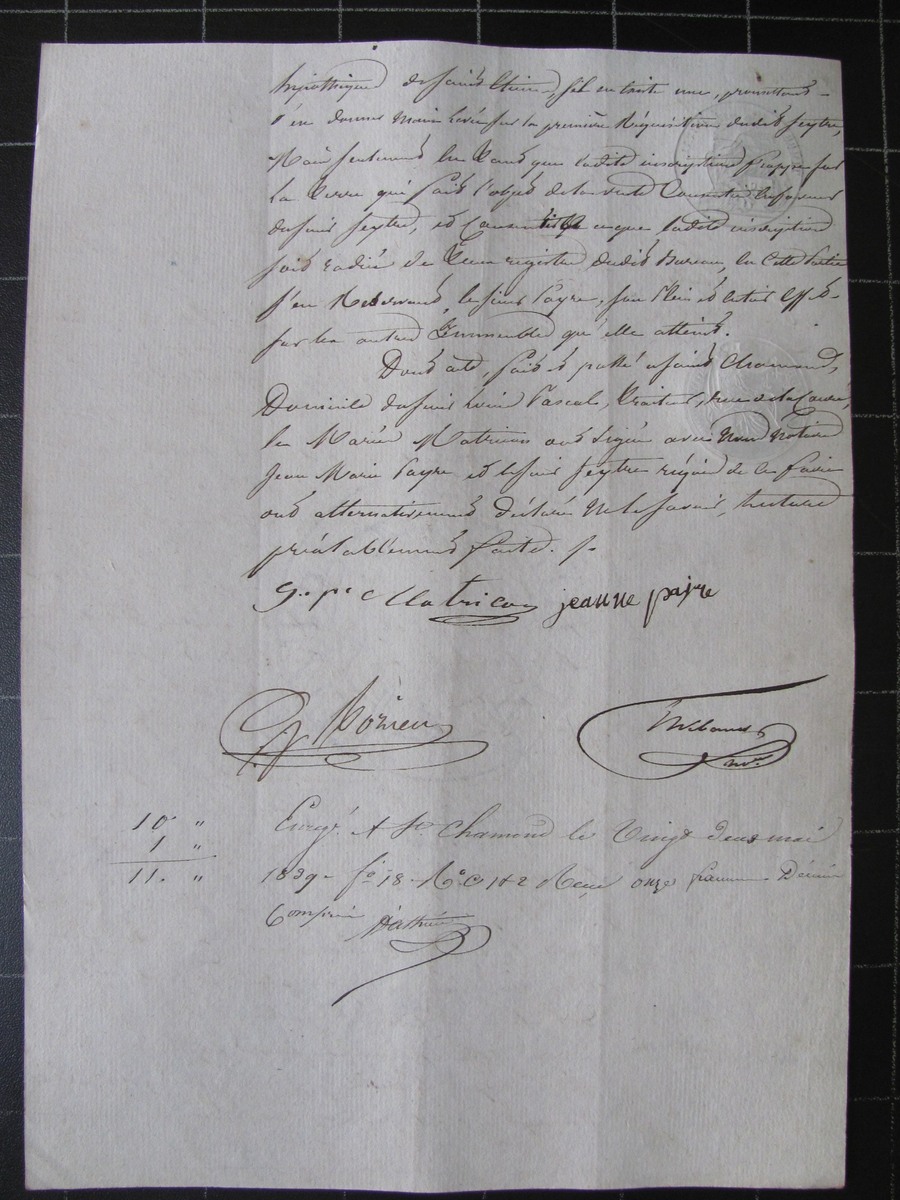 hypothèques de Saint Etienne, fol. en traite une, promettons
d'en donner main levée sur la première réquisition dudit Seytre,
mais seulement en tant que ladite inscription frappe sur
la terre qui fait l'objet de la vente consentie
du sieur Seytre, et consent à ce que ladite inscription
soit radiée de tous registres dudit bureau, en cette partie
s'en réservant, le sieur Payre, son plein et entier effet
sur les autres immeubles qu'elle atteint.
Dont acte, fait et passé à Saint Chamond,
Domicile du sieur Pascale, traiteur, rue de la
les mariés Matricon ont signé avec nous notaire
Jean Marie Payre et le sieur Seytre requis de le faire
ont alternativement déclaré ne le savoir, lecture
préalablement faite. /.
Matricon jeanne payre
10 " Enregé A St Chamond le Vingt deux mai
1 "
11. " 1839 - fo 18 - Ro C. 1 & 2 Reçu onze francs Décime
Compris